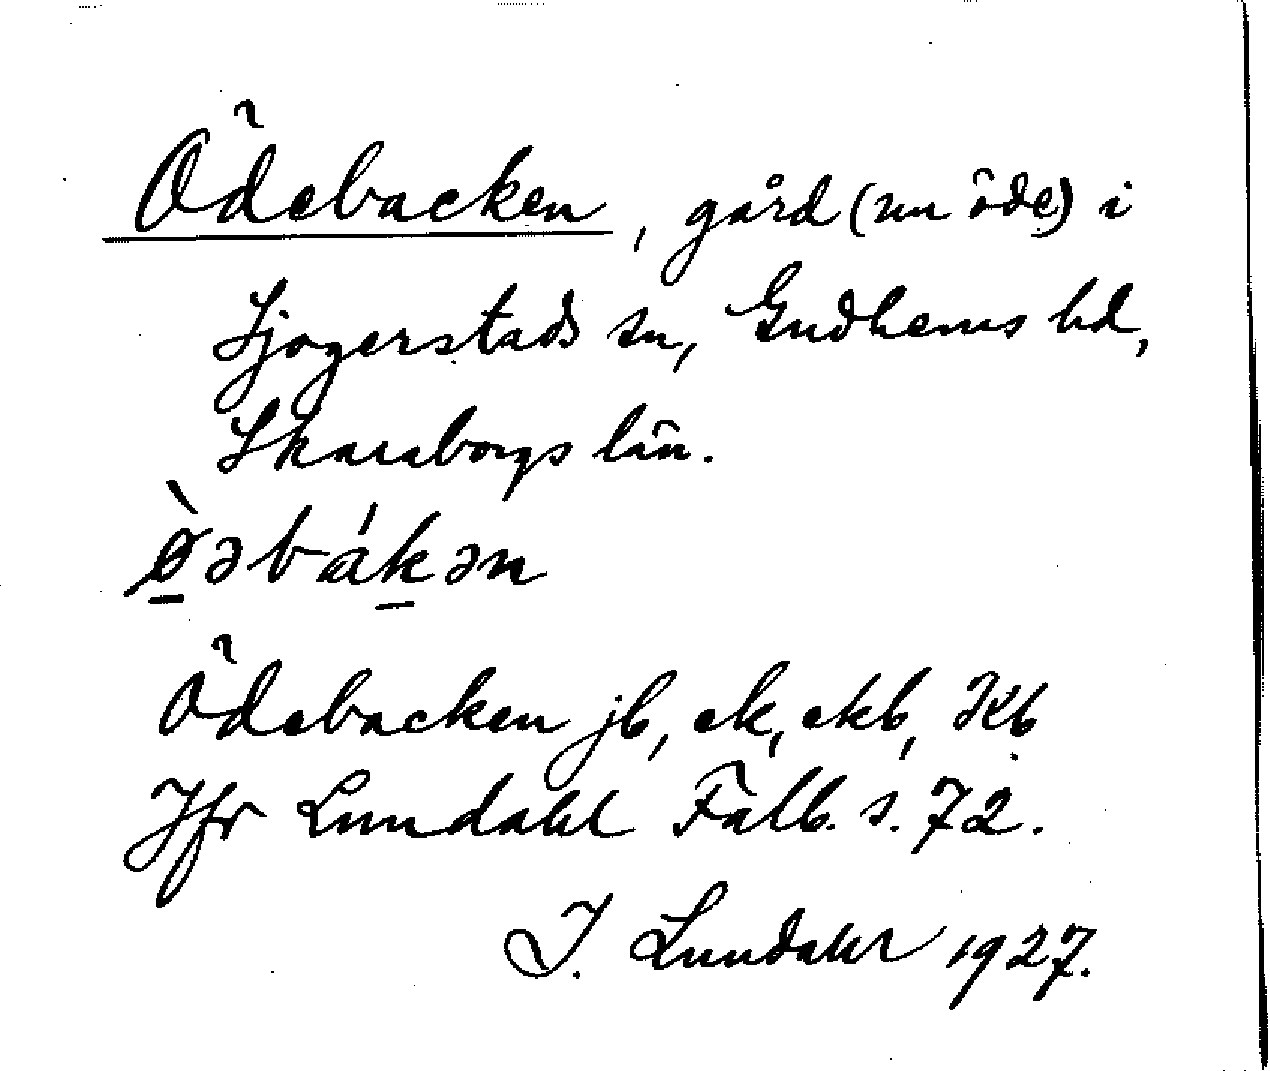 Ödebacken, gård (nu öde) i
Sjogerstads sn, Gudhems hd,
Skaraborgs län.
ø̱̀əbáḵən
Ödebacken jb, ek, ekb, Kb
Jfr Lundahl Falb. s. 72.
I. Lundahl 1927.